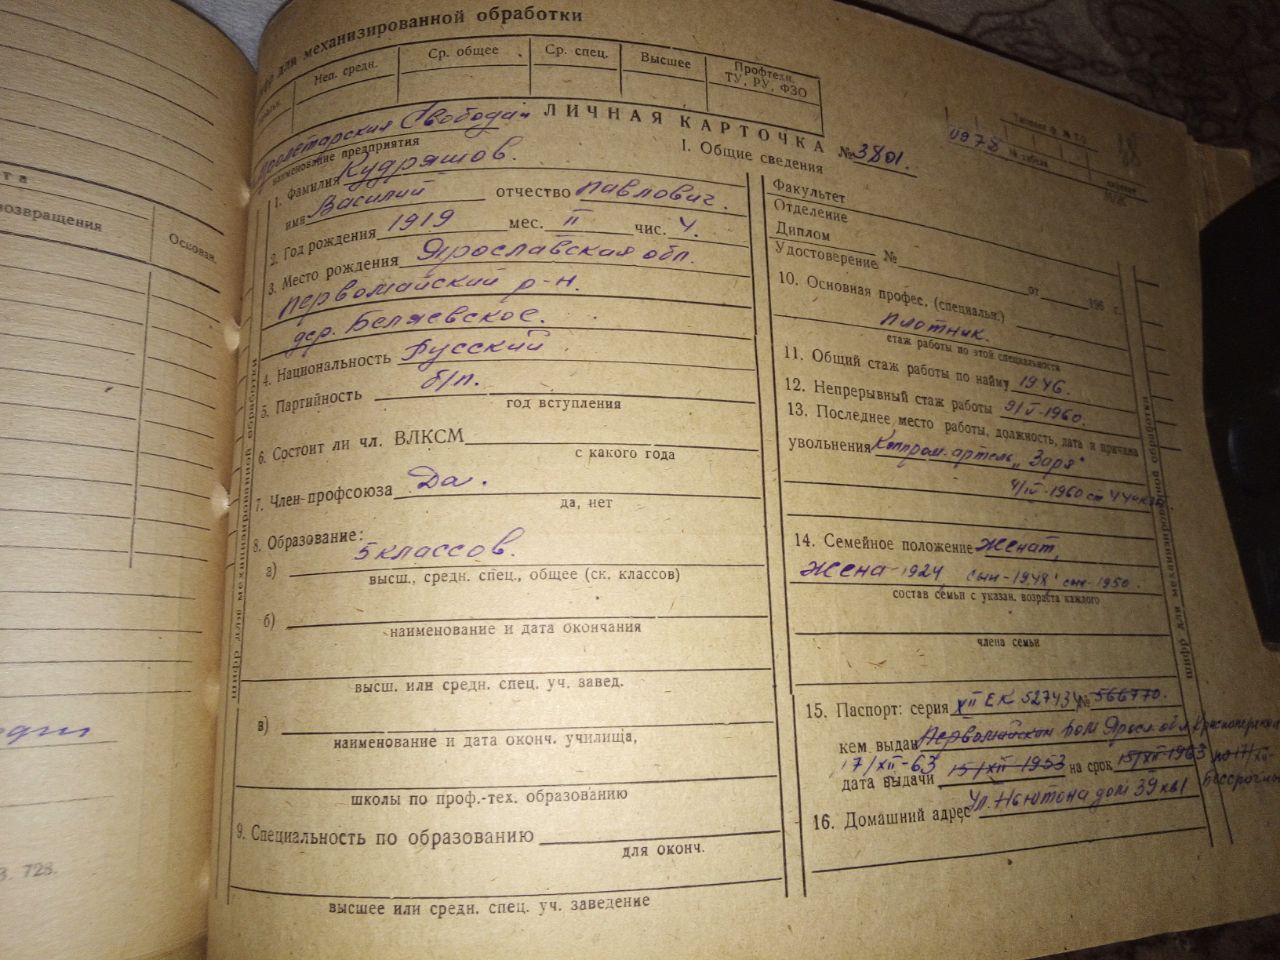 для механизированной обработки
Неп. средн.
Ср. общее
Ср. спец.
Высшее
Профтехн.
ТУ, РУ, ФЗО
Свобода"
ЛИЧНАЯ КАРТОЧКА №3801.
наименование предприятия
Типовая ф. № Т-2
0978
№ табеля
I. Общие сведения
1. Фамилия Кудряшов.
имя Василий отчество Павлович.
2. Год рождения 1919 мес. II чис. 4.
3. Место рождения Ярославская обл.
Первомайский р-н.
дер. Беляевское.
4. Национальность Русский
5. Партийность б/п.
год вступления
6. Состоит ли чл. ВЛКСМ
с какого года
7. Член профсоюза Да.
да, нет
8. Образование:
а) 5 классов.
высш., средн. спец., общее (ск. классов)
б)
наименование и дата окончания
высш. или средн. спец. уч. завед.
в)
наименование и дата оконч. училища,
школы по проф.-тех. образованию
9. Специальность по образованию
для оконч.
высшее или средн. спец. уч. заведение
Факультет
Отделение
Диплом
Удостоверение №
от 196 г.
10. Основная профес. (специальн.)
плотник.
стаж работы по этой специальности
11. Общий стаж работы по найму 1946.
12. Непрерывный стаж работы 9/V-1960.
13. Последнее место работы, должность, дата и причина
увольнения артель "Заря"
4/IV-1960 ст 44
14. Семейное положение Женат,
жена-1924, сын-1948, сын-1950.
состав семьи с указан. возраста каждого
члена семьи
15. Паспорт: серия XII ЕК 527434 № 566770.
кем выдан Первомайским РОМ Яросл. обл.
17/XII-63
дата выдачи 15/XII-1953 на срок 15/XII-1963 по 17/XII-
бессрочный
16. Домашний адрес ул. Ньютона дом 39 кв 1
шифр для механизированной обработки
шифр для механизированной обработки
та
возвращения
Основан.
З. 723.